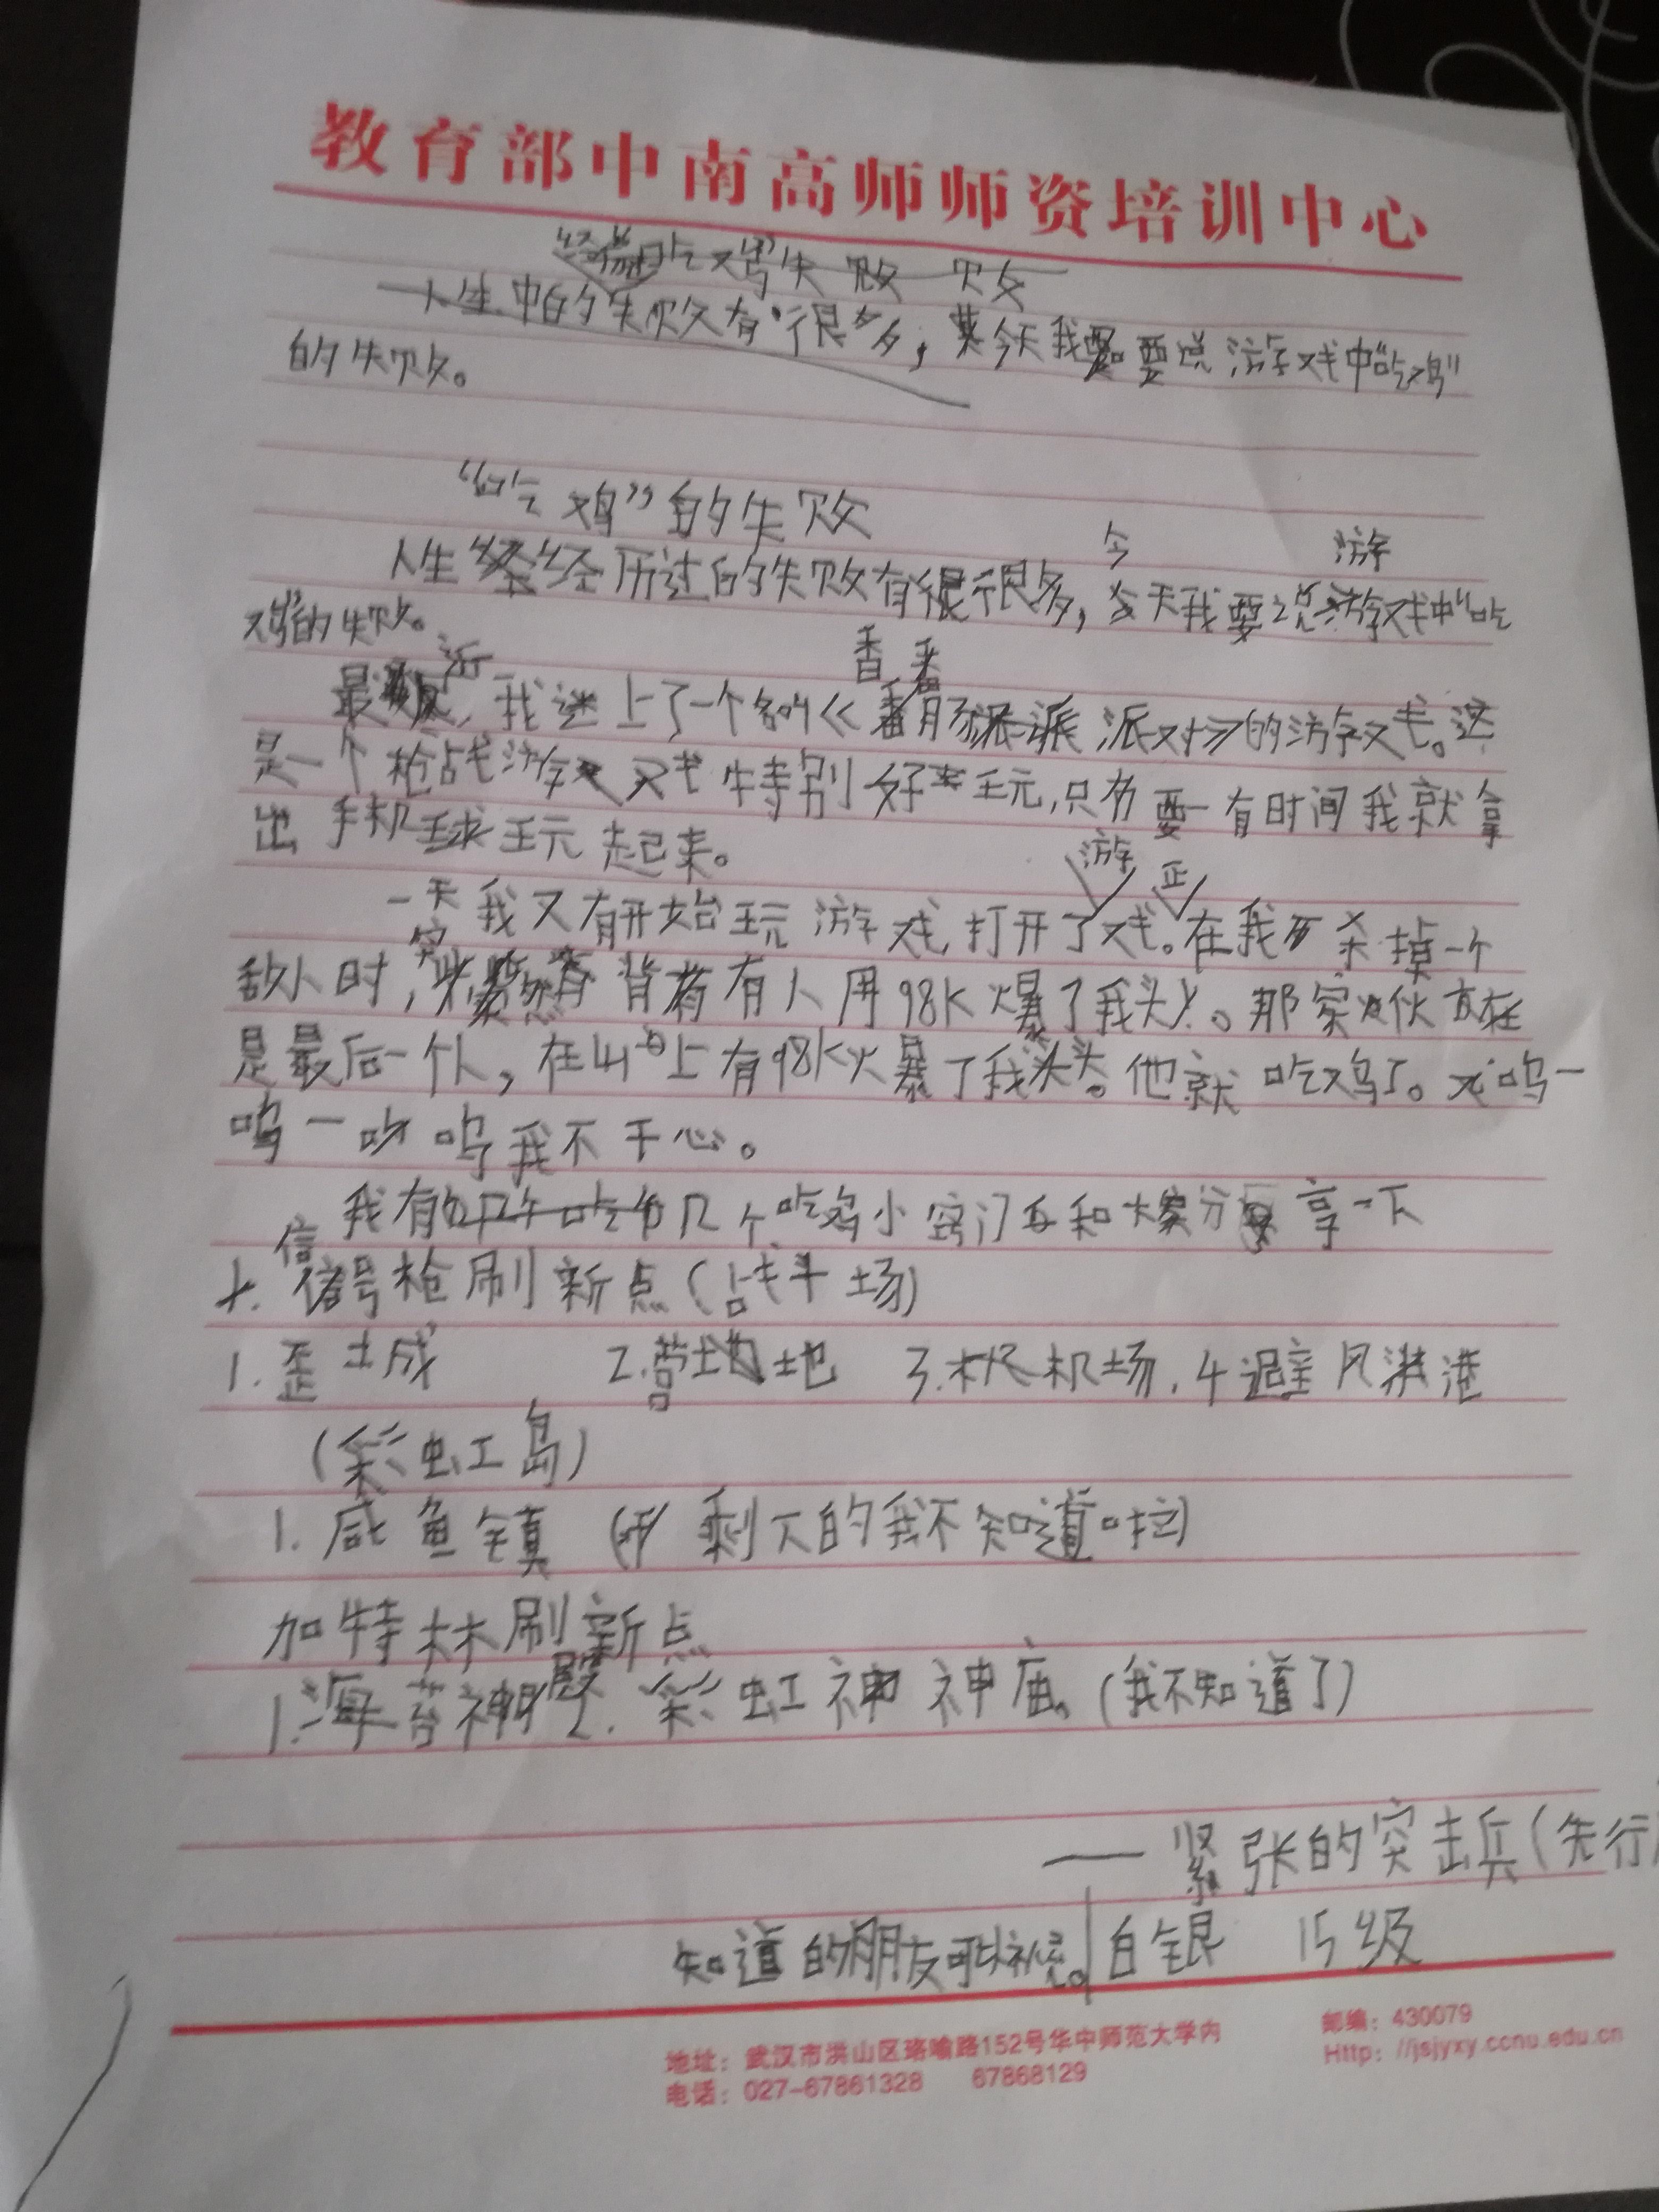 教育部中南高师师资培训中心
吃鸡失败
人生中的失败有很多,今天我要说游戏中"吃鸡"
的失败。
"吃鸡"的失败
今 游
人生经历过的失败有很很多,天我要说游戏中"吃
鸡"的失败。
近 香
最,我迷上了一个名叫《肠派对》的游戏。这
是一个枪战游戏特别好玩,只要一有时间我就拿
出手机玩起来。
游 正
一天我又开始玩游戏,打开了戏。在我杀掉一个
突
敌人时,然背有人用98K爆了我头。那家伙
是最后一个人,在山上有98K火暴了我头。他就吃鸡了。呜一
呜一呜我不干心。
我有几个吃鸡小窍门和大家分享一下
信
号枪刷新点(战斗场)
1.歪城 2.营地 3.机场.4避风港
(彩虹岛)
1.咸鱼镇(剩下的我不知道啦)
加特林刷新点
殿
1.海苔神 2.彩虹神神庙。(我不知道了)
——紧张的突击兵(先行
知道的朋友可以补充。白银 15级
地址:武汉市洪山区珞喻路152号华中师范大学内 邮编:430079
电话:027-67861328 67868129 Http://jsjyxy.ccnu.edu.cn